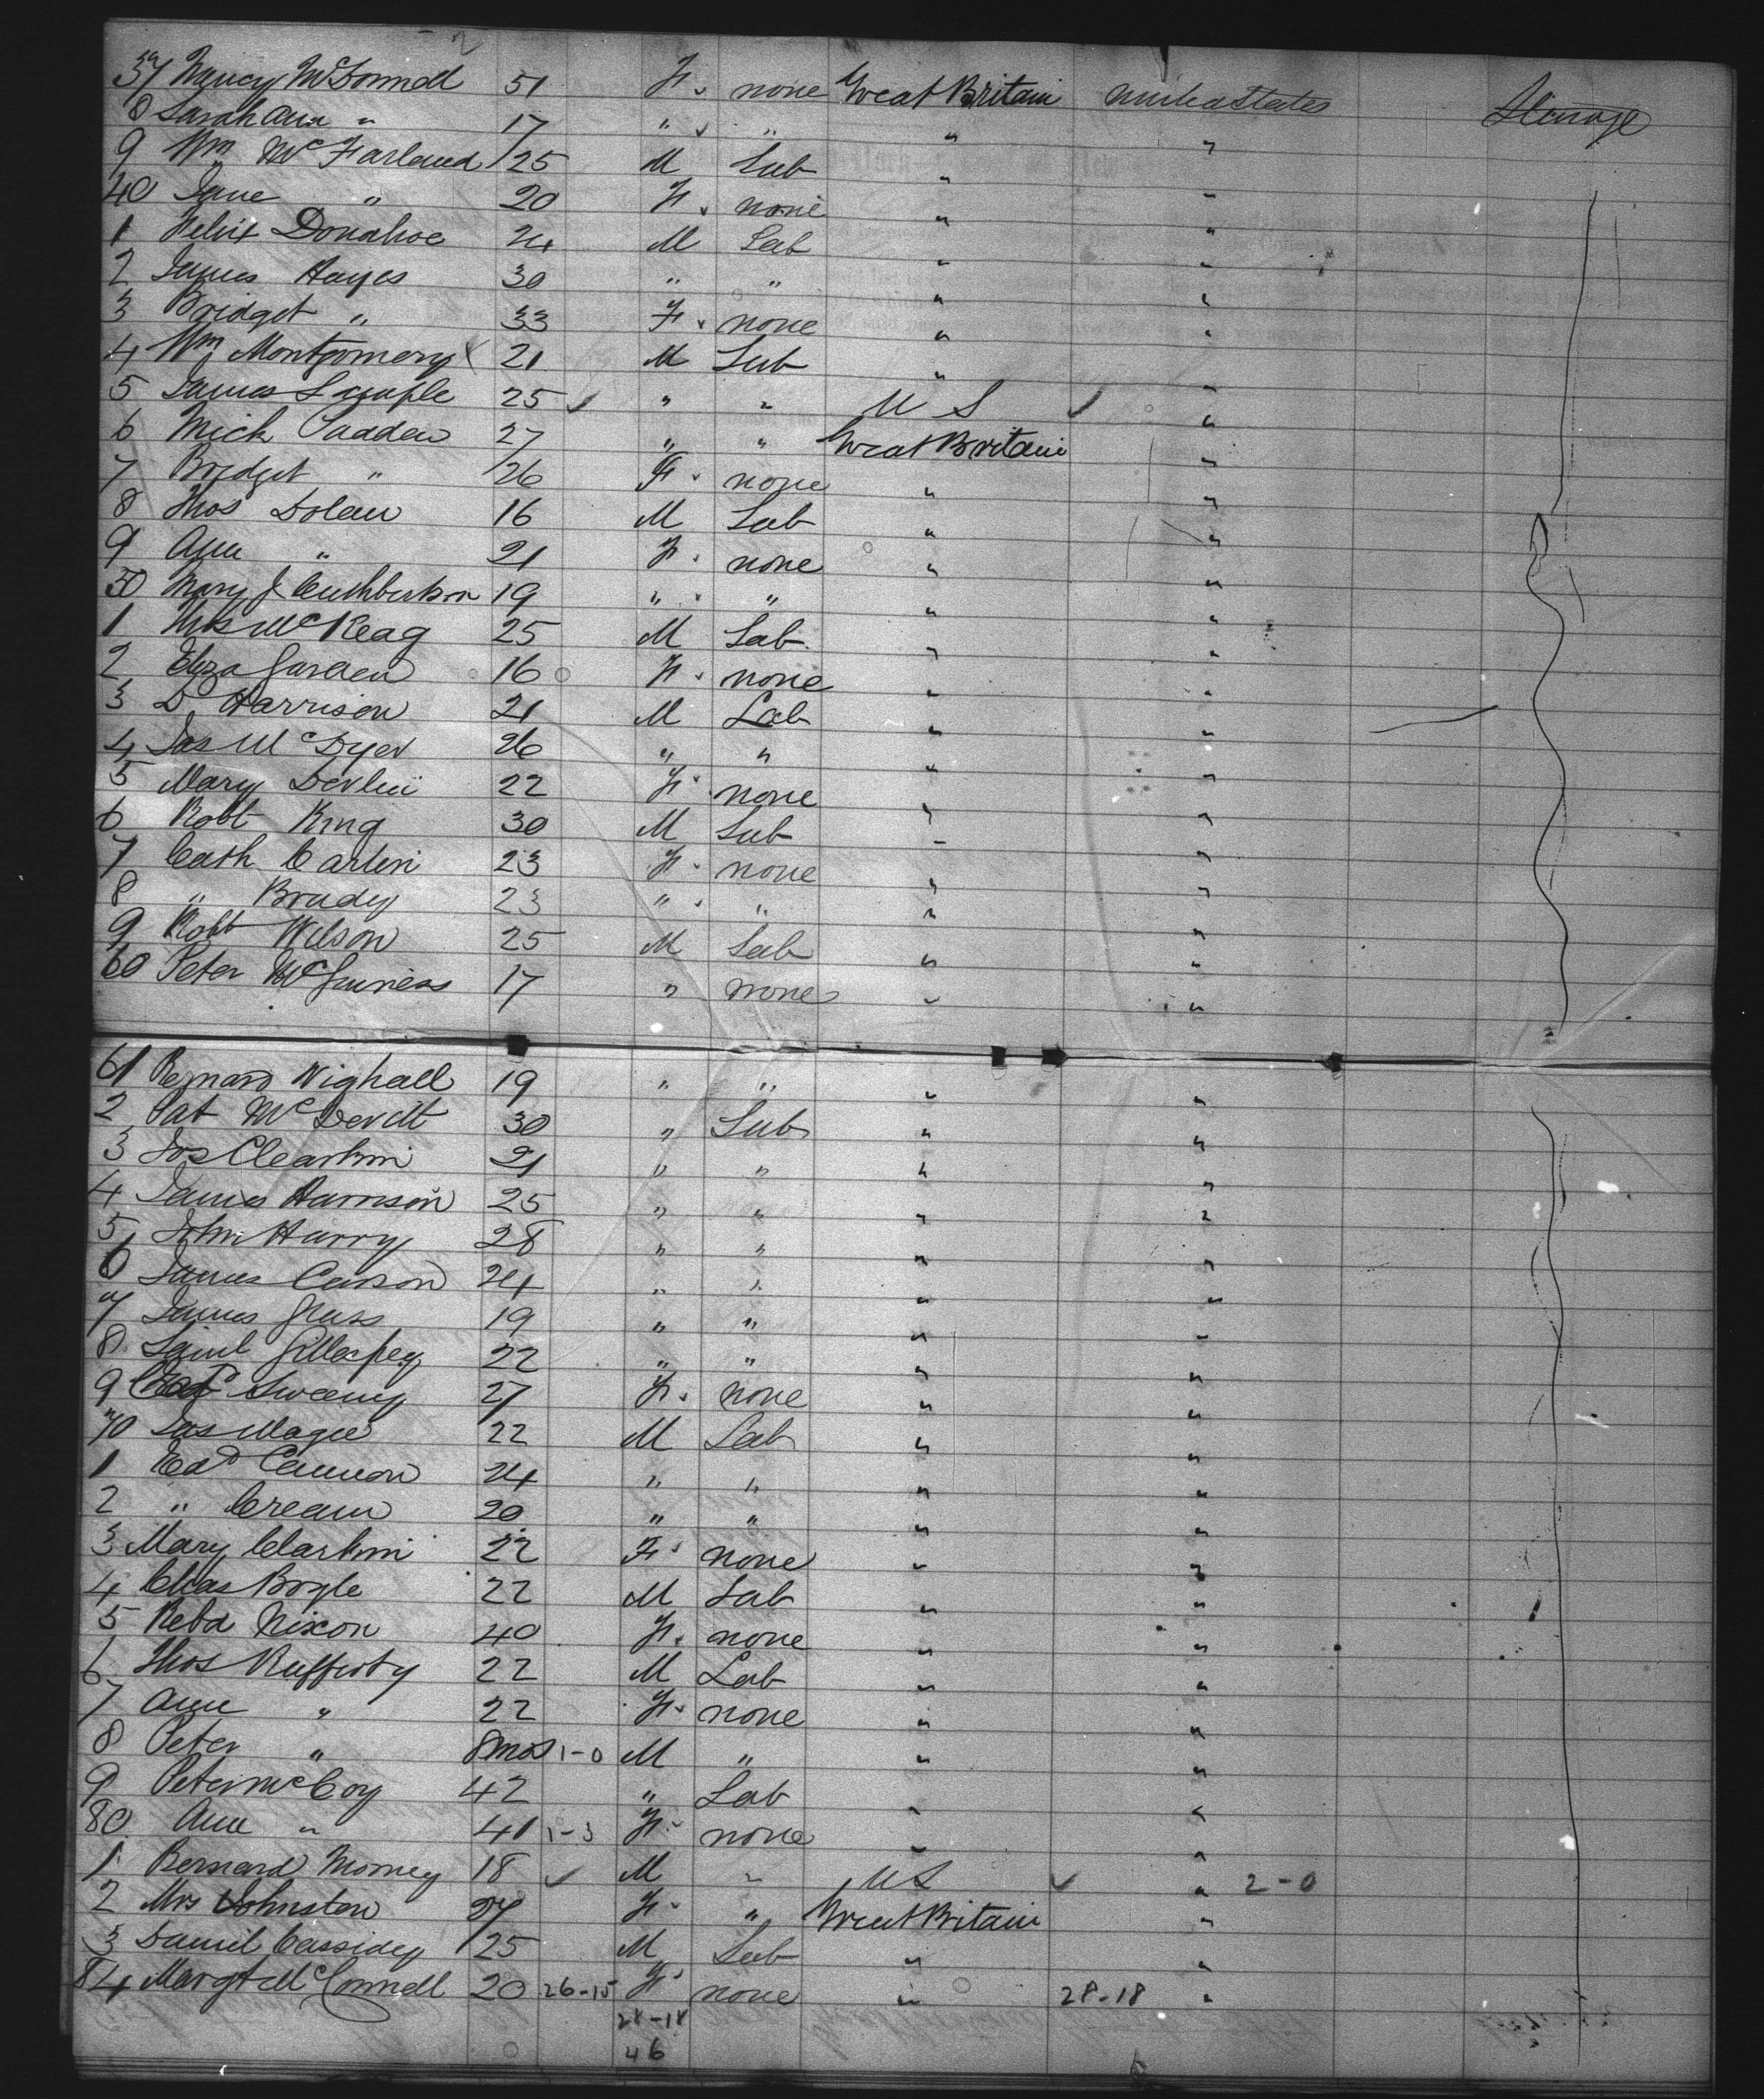 37 Nancy McDonnell 51 F none Great Britain United States Steerage
8 Sarah Ann " 17 " " " "
9 Wm McFarland 25 M Lab " "
40 Jane " 20 F none " "
1 Felix Donahoe 24 M Lab " "
2 James Hayes 30 " " " "
3 Bridget " 33 F none " "
4 Wm Montgomery 21 M Lab " "
5 James Sample 25 " " U S "
6 Mick Fadden 27 " " Great Britain "
7 Bridget " 26 F none " "
8 Thos Dolan 16 M Lab " "
9 Ann " 21 F none " "
50 Mary J Cuthbertson 19 " " " "
1 McKeag 25 M Lab " "
2 Eliza 16 F none " "
3 D Harrison 21 M Lab " "
4 Jas McDyer 26 " " " "
5 Mary Devlin 22 F none " "
6 Robt King 30 M Lab " "
7 Cath Carlin 23 F none " "
8 " Brady 23 " " " "
9 Robt Wilson 25 M Lab " "
60 Peter McGuiness 17 " none " "
61 Bernard Wighall 19 " " " "
2 Pat McDevitt 30 " Lab " "
3 Jos Clearkin 21 " " " "
4 James Harrison 25 " " " "
5 John Harry 28 " " " "
6 James Carson 24 " " " "
7 James Grass 19 " " " "
8 Saml Gillespey 22 " " " "
9 Sweeny 27 F none " "
70 Jas Magee 22 M Lab " "
1 Edd Cannon 24 " " " "
2 " Crean 20 " " " "
3 Mary Clarkin 22 F none " "
4 Chas Boyle 22 M Lab " "
5 Reba Nixon 40 F none " "
6 Thos Rafferty 22 M Lab " "
7 Ann " 22 F none " "
8 Peter " 8mos 1-0 M " " "
9 Peter McCoy 42 " Lab " "
80 Ann " 41 1-3 F none " "
1 Bernard Morney 18 M " U S " 2-0
2 Mrs Johnston 27 F " Great Britain "
3 Daniel Cassidey 25 M Lab " "
84 Margt McConnell 20 26-15 F none " 28-18 "
28-18
46